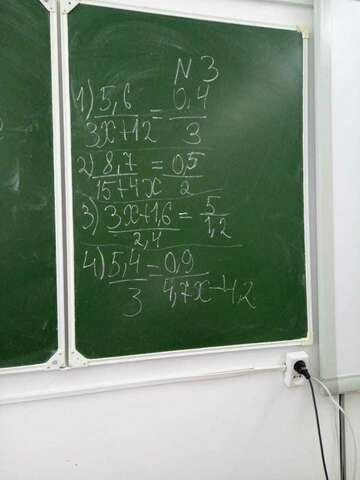 N 3
1) 5,6/3x+12 = 0,4/3
2) 8,7/15+4x = 0,5/2
3) 3x+1,6/2,4 = 5/1,2
4) 5,4/3 = 0,9/4,7x-4,2